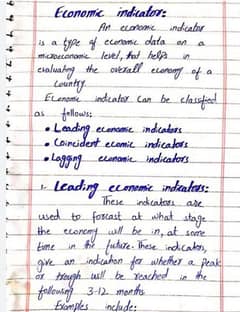 Economic indicator:
An economic indicator
is a type of economic data on a
microeconomic level, that helps in
evaluating the overall economy of a
country.
Economic indicator can be classified
as follows:
• Leading economic indicators
• Coincident ecomic indicators
• Lagging economic indicators
1. Leading economic indicators:
These indicators are
used to forcast at what stage
the economy will be in, at some
time in the future. These indicators,
give an indication for whether a peak
or trough will be reached in the
following 3-12 months.
Examples include: